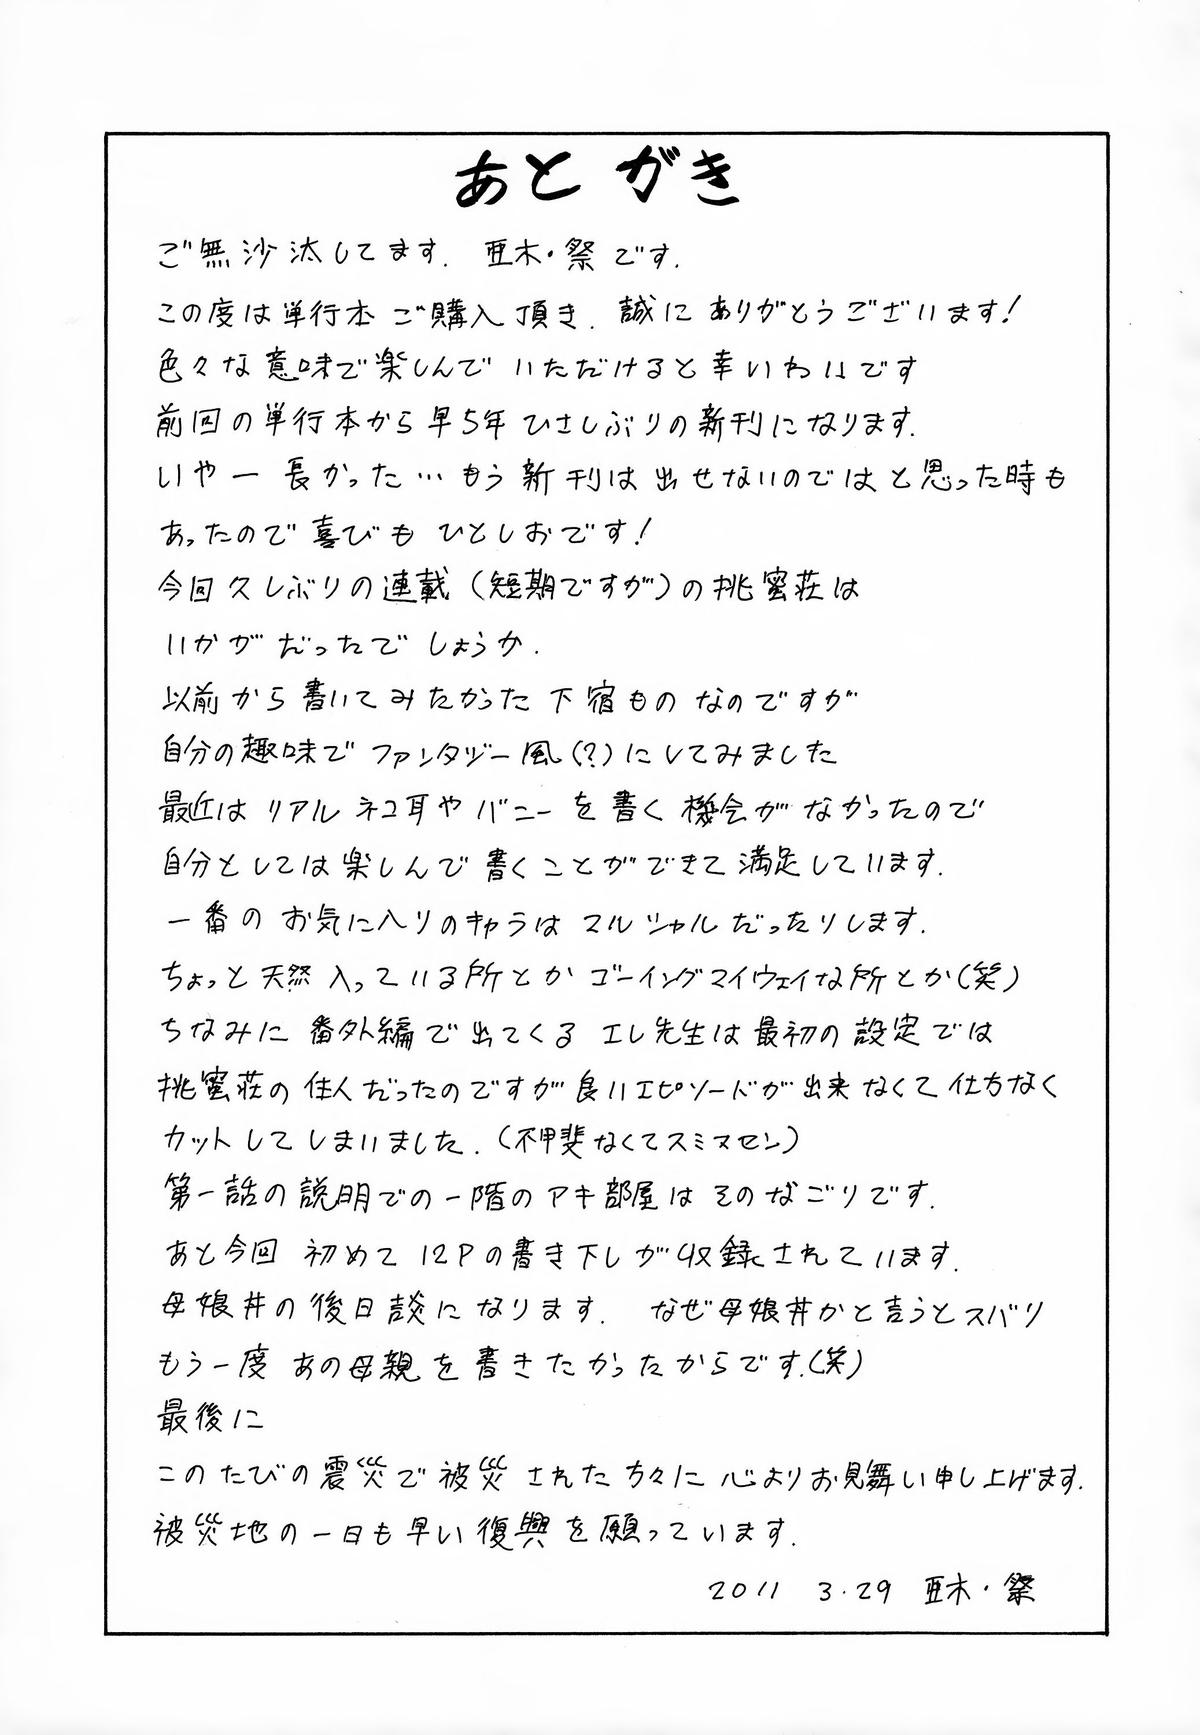 あとがき
ご無沙汰してます. 亜木・祭です.
この度は単行本ご購入頂き. 誠にありがとうございます!
色々な意味で楽しんでいただけると幸いわいです
前回の単行本から早5年ひさしぶりの新刊になります.
いやー長かった…もう新刊は出せないのではと思った時も
あったので喜びもひとしおです!
今回久しぶりの連載(短期ですが)の挑蜜荘は
いかがだったでしょうか.
以前から書いてみたかった下宿ものなのですが
自分の趣味でファンタジー風(?)にしてみました
最近はリアルネコ耳やバニーを書く機会がなかったので
自分としては楽しんで書くことができて満足しています.
一番のお気に入りのキャラはマルシャルだったりします.
ちょっと天然入っている所とかゴーイングマイウェイな所とか(笑)
ちなみに番外編で出てくるエレ先生は最初の設定では
挑蜜荘の住人だったのですが良いエピソードが出来なくて仕方なく
カットしてしまいました.(不甲斐なくてスミマセン)
第一話の説明での一階のアキ部屋はそのなごりです.
あと今回初めて12Pの書き下しが収録されています.
母娘丼の後日談になります. なぜ母娘丼かと言うとズバリ
もう一度あの母親を書きたかったからです.(笑)
最後に
このたびの震災で被災された方々に心よりお見舞い申し上げます.
被災地の一日も早い復興を願っています.
2011 3.29 亜木・祭